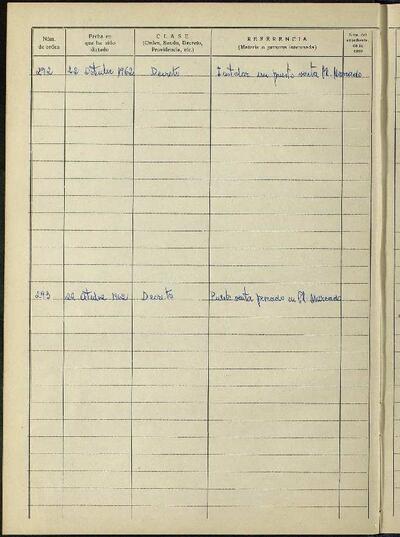 Núm. de orden
Fecha en que ha sido dictado
CLASE (Orden, Bando, Decreto, Providencia, etc.)
REFERENCIA (Materia o persona interesada)
Núm. del expediente
292 22 octubre 1962 Decreto Instalar un puesto venta Pl. Mercado
293 22 octubre 1962 Decreto Puesto venta pescado en Pl. Mercado